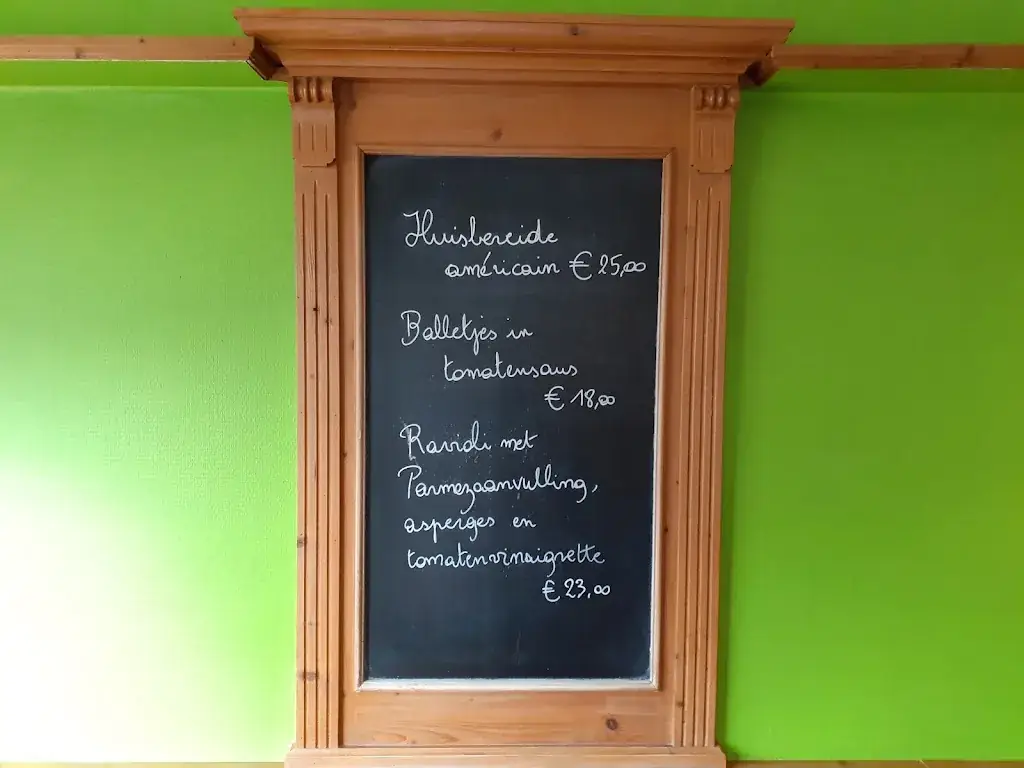 Huisbereide
américain € 25,00
Balletjes in
tomatensaus
€ 18,00
Ravioli met
Parmezaanvulling,
asperges en
tomatenvinaigrette
€ 23,00